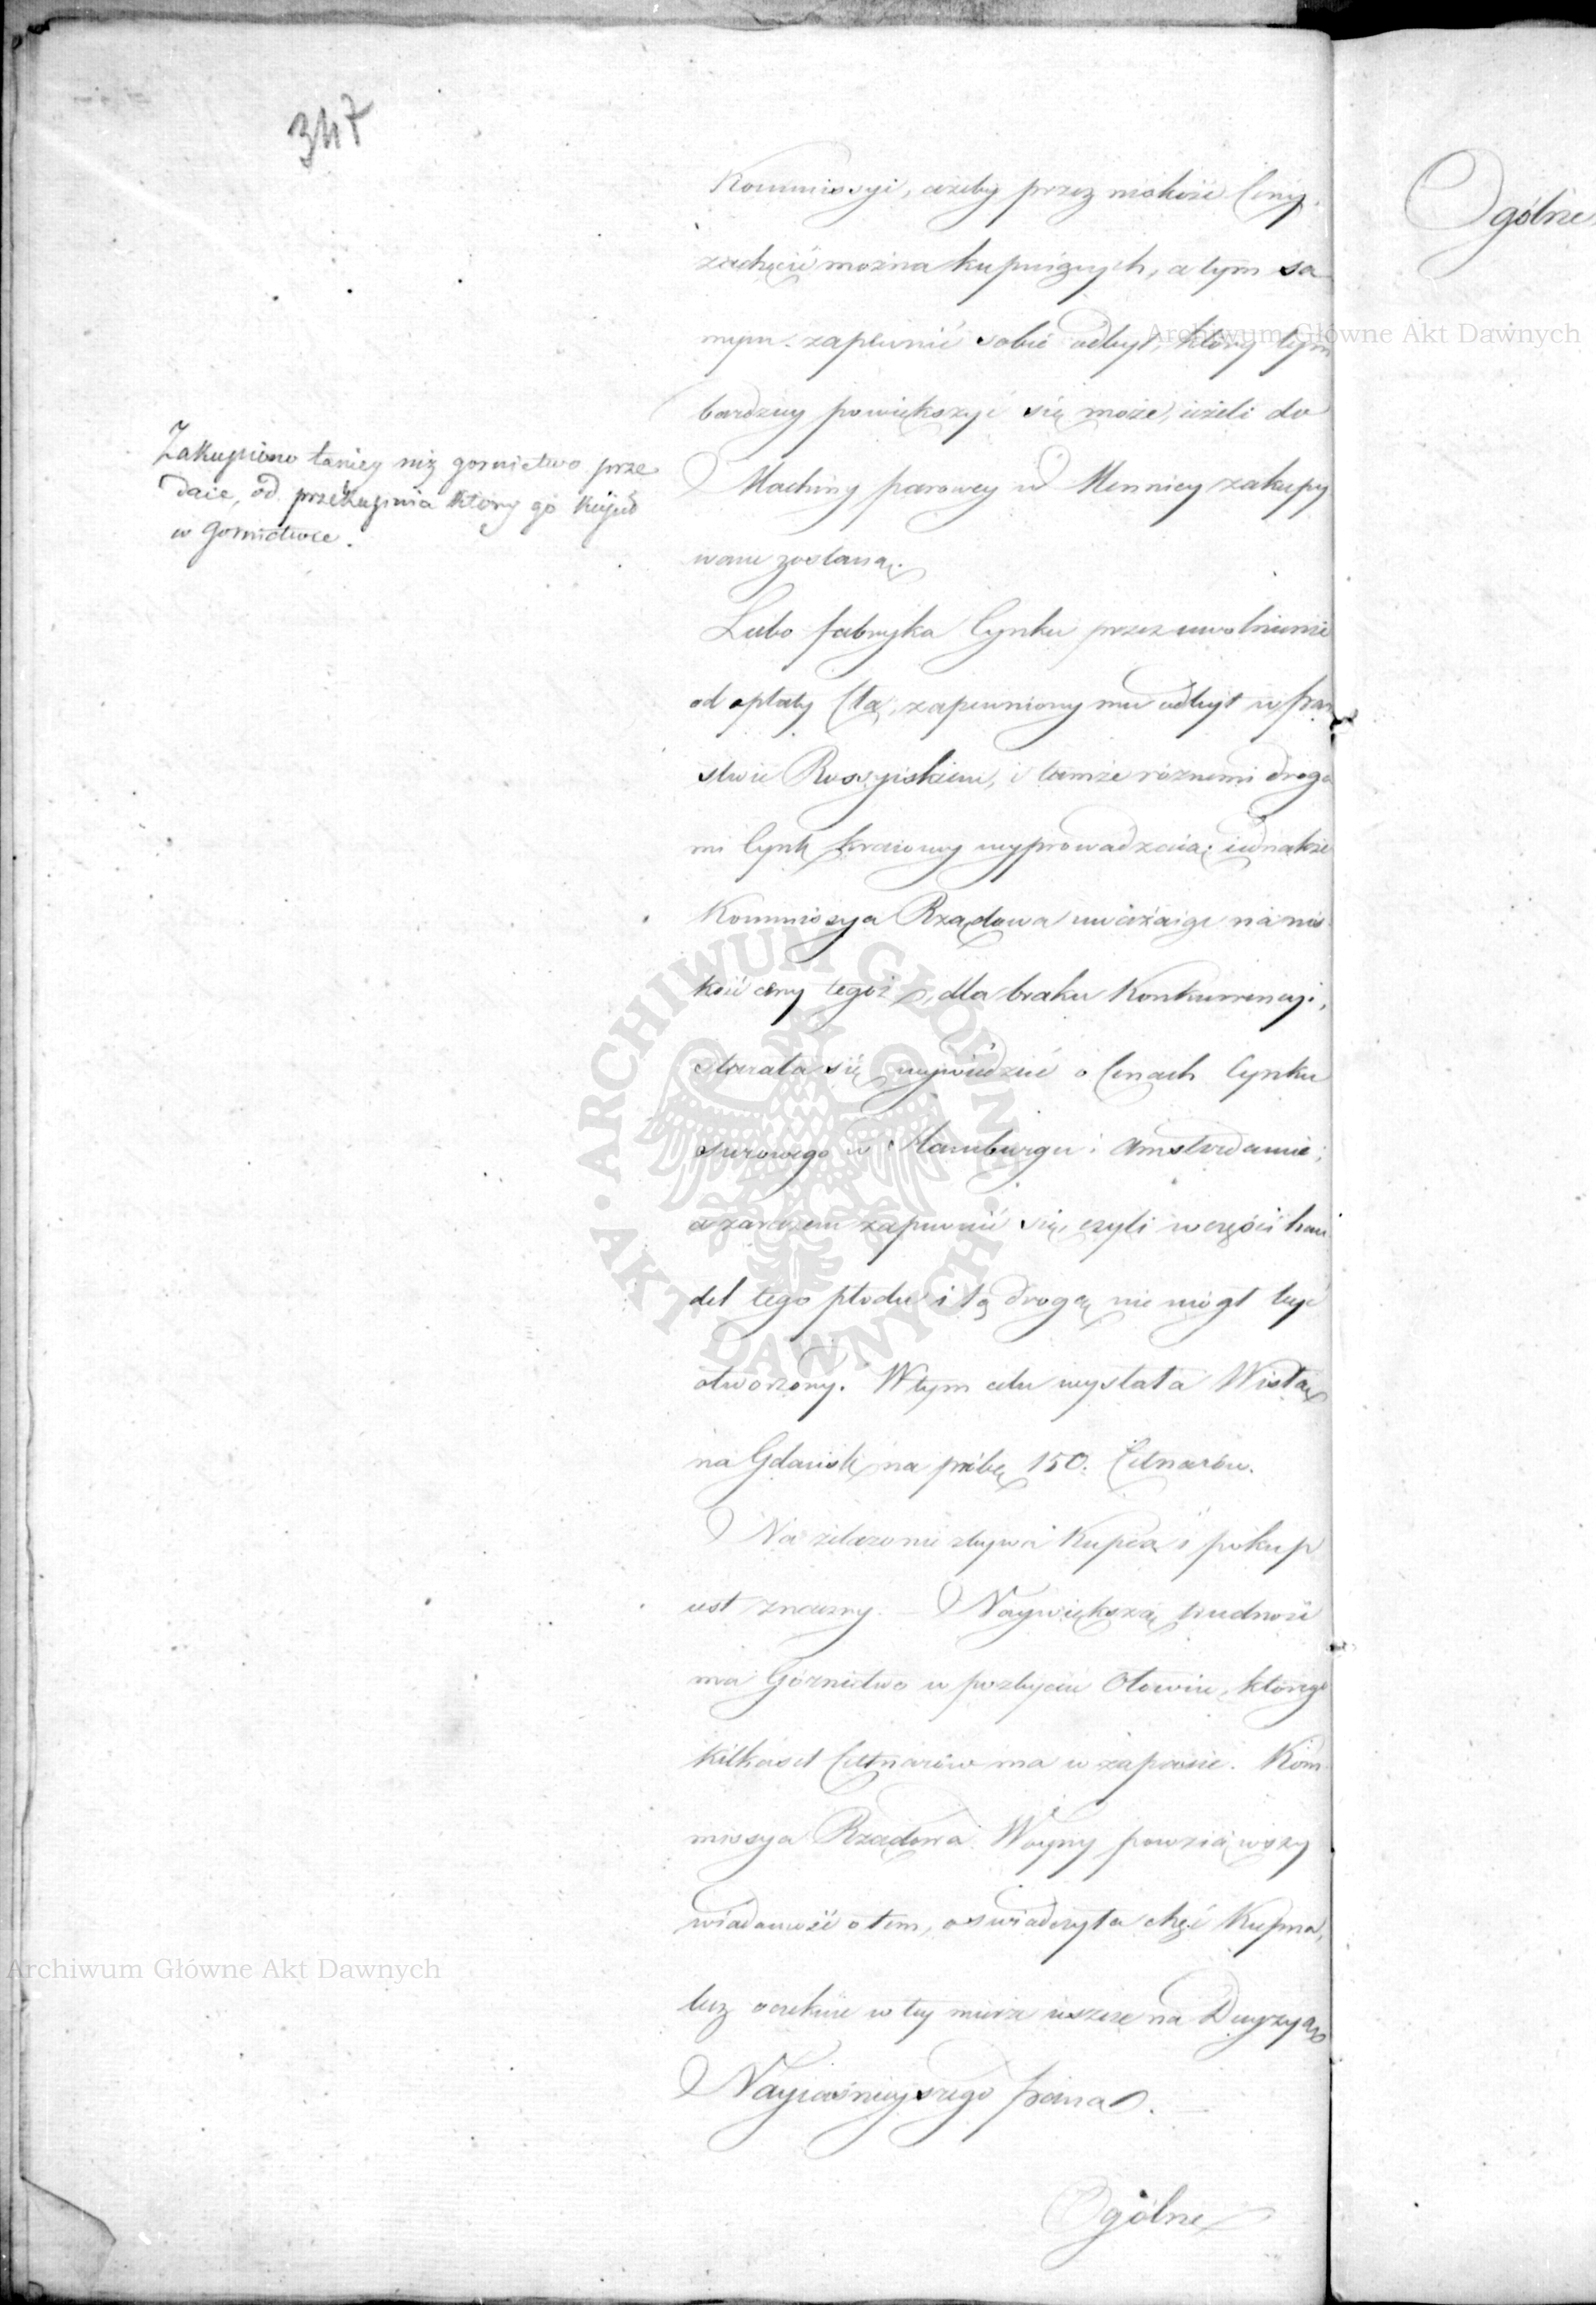 347
Kommissyi, ażeby przez niskość Ceny
zachęcić można kupuiących, a tym sa
mym zapewnić sobie odbyt, który tym
bardziey powiększyć się może, ieżeli do
Machiny parowey w Mennicy zakupy
wane zostaną.
Zakupiono taniey niż gornictwo prze
daie, od przekupnia który go kupił
w Gornictwie.
Lubo fabryka Cynku przez uwolnienie
od opłaty Cła, zapewniony ma odbyt w Pań
stwie Rossyiskiem, i tamże róznemi droga
mi Cynk kraiowy wyprowadzaią; iednakże
Kommissya Rządowa uważaiąc na nis
kość ceny tegoż, dla braku Konkurrencyi,
starała się wywiedzieć o Cenach Cynku
surowego w Hamburgu i Amsterdamie;
a zarazem zapewnić się, czyli w części han
del tego płodu i tą drogą nie mógł być
otworzony. W tym celu wysłała Wisłą
na Gdańsk na próbę 150. Cetnarów.
Na żelazo nie zbywa Kupca i pokup
iest znaczny. – Naywiększą trudność
ma Górnictwo w pozbyciu Ołowiu, którego
kilkaset Cetnarów ma w zapasie. Kom
missya Rządowa Woyny powziąwszy
wiadomość o tem, oswiadczyła chęć Kupna,
lecz oczekuie w tey mierze ieszcze na Decyzyą
Nayiaśnieyszego Pana.
Ogólne
Ogólne
Archiwum Główne Akt Dawnych
ARCHIWUM GŁÓWNE AKT DAWNYCH
Archiwum Główne Akt Dawnych